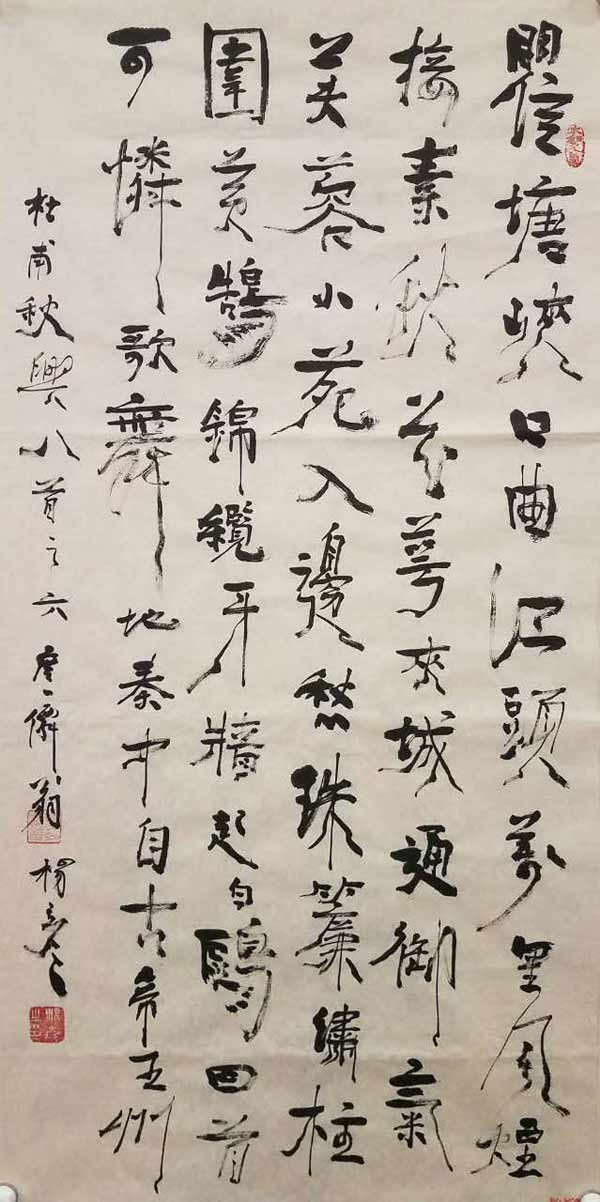 瞿塘峽口曲江頭萬里風煙
接素秋花萼夾城通御氣
芙蓉小苑入邊愁珠簾繡柱
圍黃鵠錦纜牙牆起白鷗回首
可憐歌舞地秦中自古帝王州
杜甫秋興八首之六 僊翁 楊